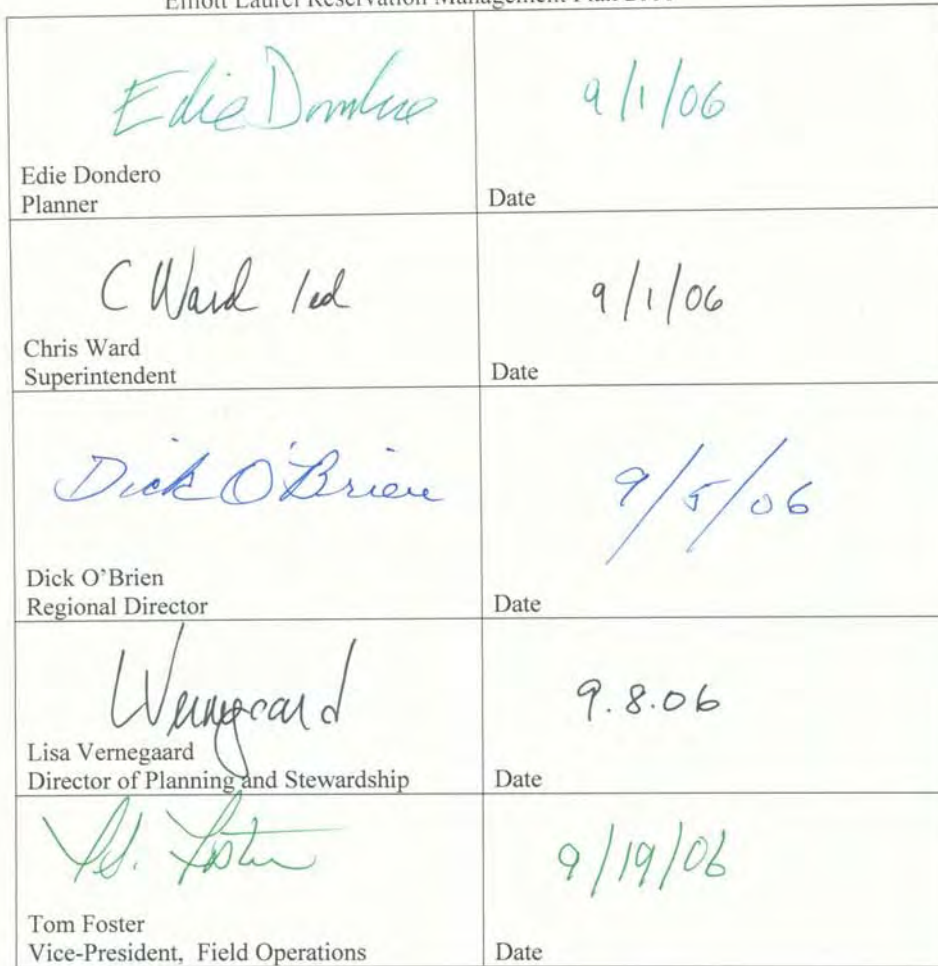 Elliott Laurel Reservation Management Plan
Edie Dondero 9/1/06
Edie Dondero
Planner Date
C Ward /ed 9/1/06
Chris Ward
Superintendent Date
Dick O'Brien 9/5/06
Dick O'Brien
Regional Director Date
Vernegaard 9.8.06
Lisa Vernegaard
Director of Planning and Stewardship Date
Foster 9/19/06
Tom Foster
Vice-President, Field Operations Date